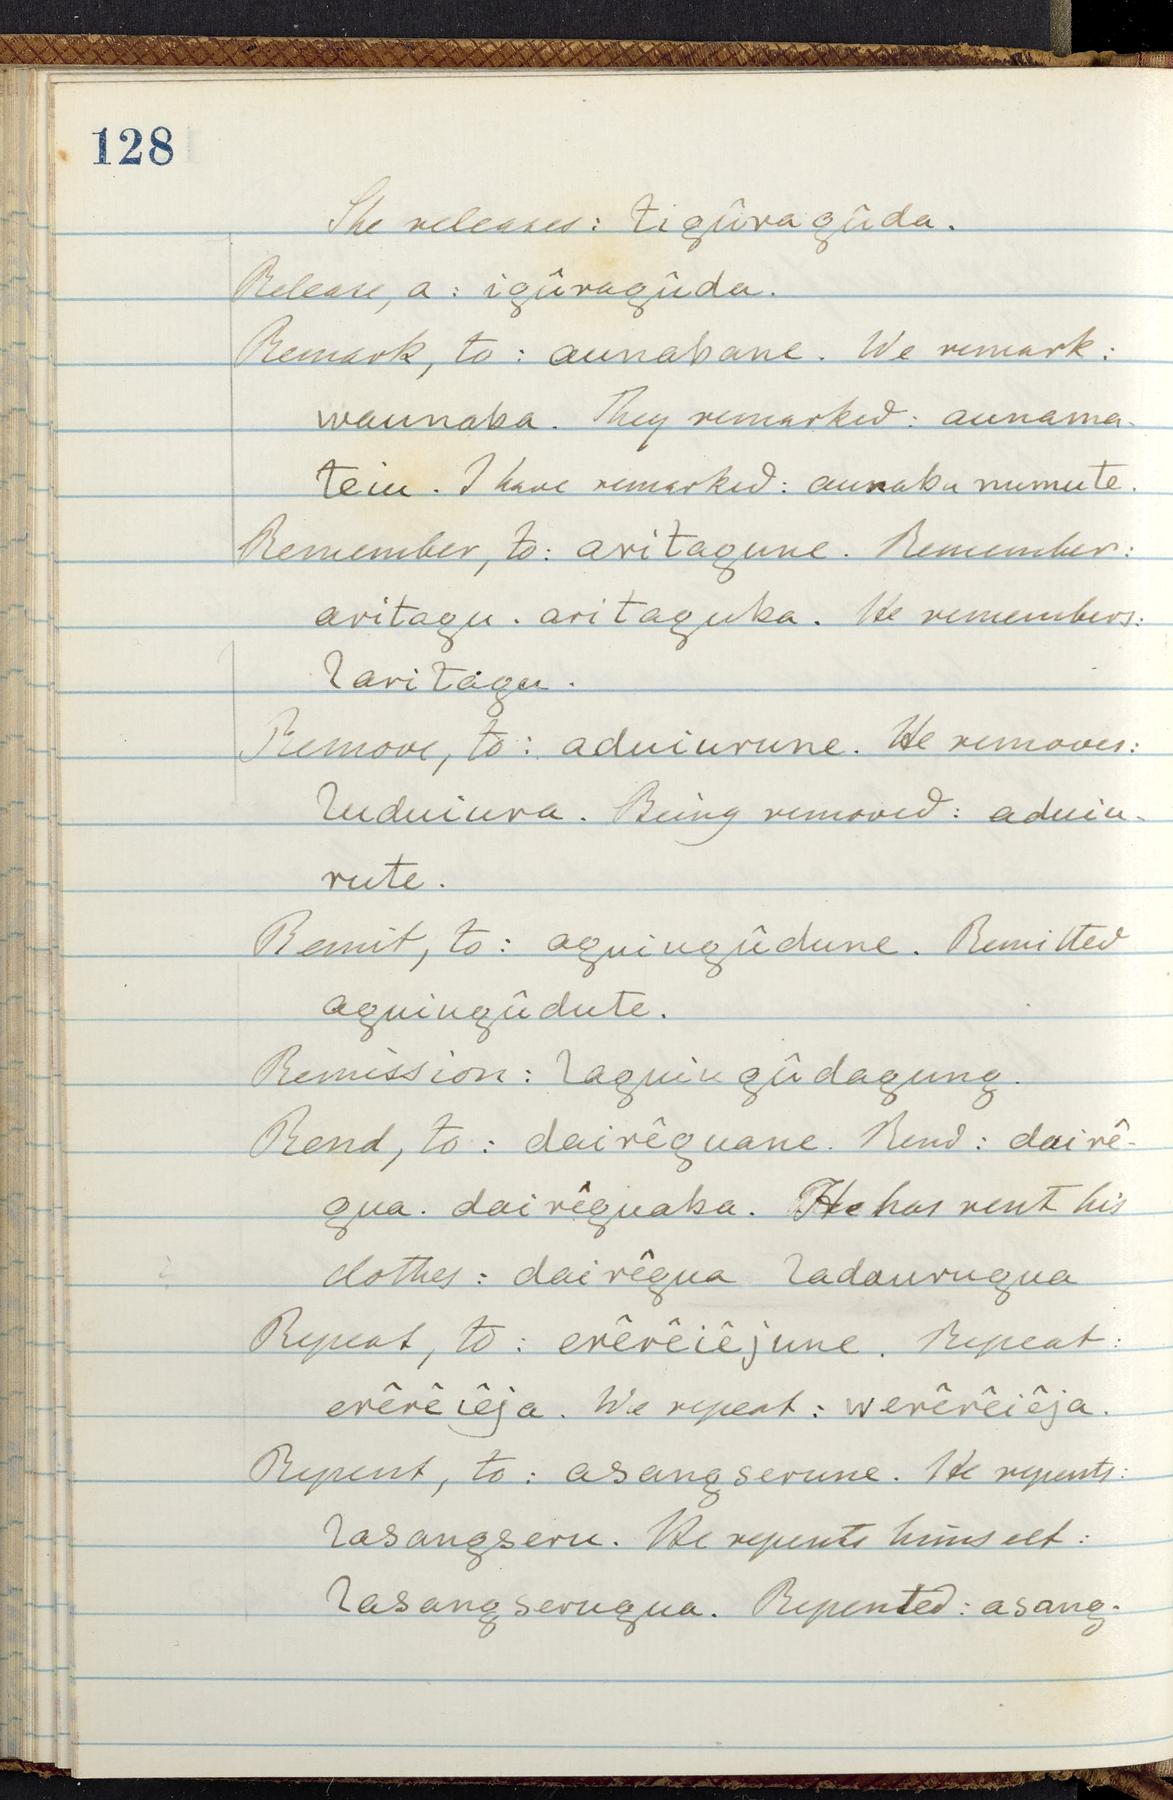 128
She releases: tigûragûda.
Release, a: igûragûda.
Remark, to: aunabane. We remark:
waunaba. They remarked: aunama-
teiu. I have remarked: aunaba numute.
Remember, to: aritagune. Remember:
aritagu. aritaguba. He remembers:
laritagu.
Remove, to: aduiurune. He removes:
luduiura. Being removed: aduiu-
rute.
Remit, to: aguiugûdune. Remitted
aguiugûdute.
Remission: laguiugûdagung.
Rend, to: dairêguane. Rend: dairê-
gua. dairêguaba. He has rent his
clothes: dairêgua ladaurugua
Repeat, to: erêrêiêjune. Repeat:
erêrêiêja. We repeat: werêrêiêja.
Repent, to: asangserune. He repents:
lasangseru. He repents himself:
lasangserugua. Repented: asang-